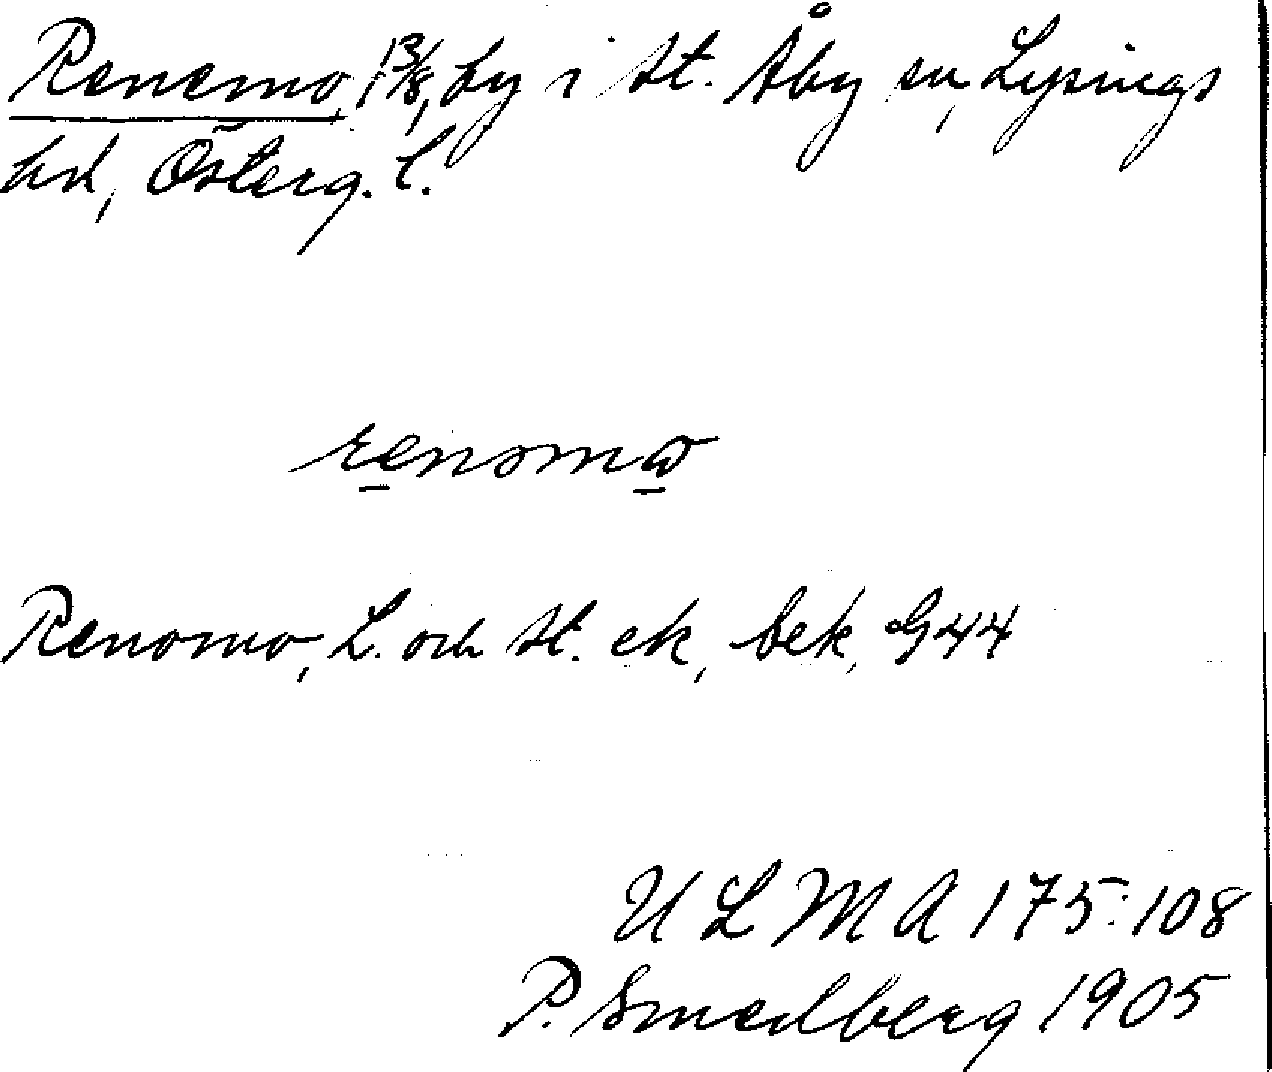 Renemo, 1 3/8, by i St. Åby sn, Lysings
hd, Österg. l.
renəmo
Renomo, L. och St. ek, bek, G44
ULMA 175:108
P. Smedberg 1905